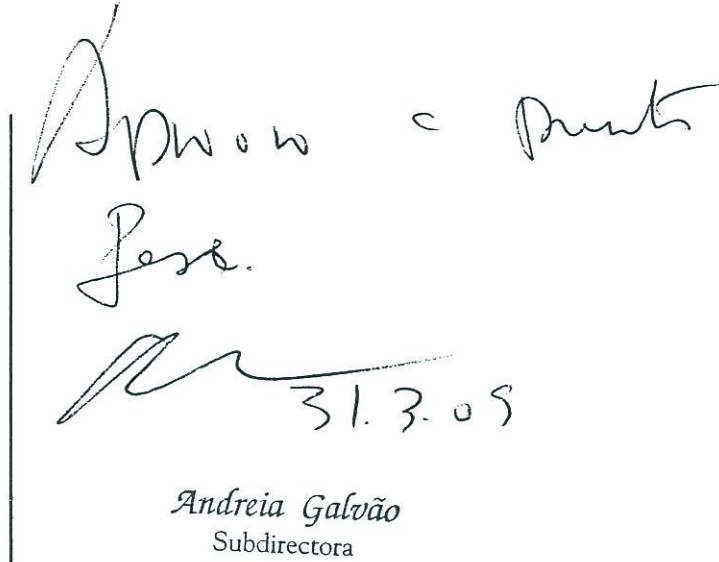 Aprovo a
31.3.09
Andreia Galvão
Subdirectora